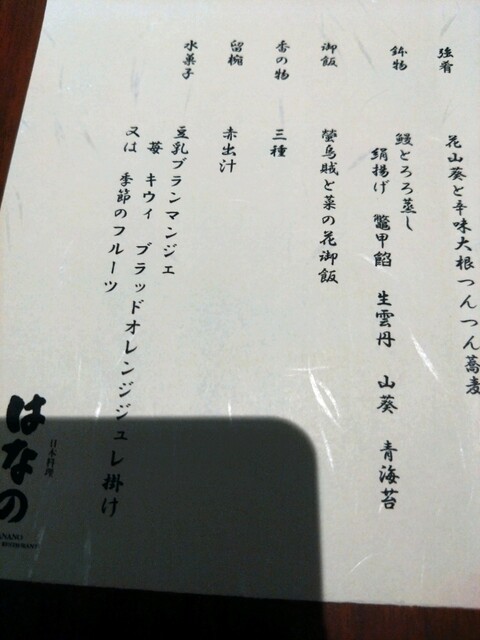 強肴
花山葵と辛味大根つんつん蕎麦
鉢物
鰻とろろ蒸し
絹揚げ 鼈甲餡 生雲丹 山葵 青海苔
御飯
螢烏賊と菜の花御飯
香の物
三種
留椀
赤出汁
水菓子
豆乳ブランマンジェ
苺 キウィ ブラッドオレンジジュレ掛け
又は 季節のフルーツ
日本料理
はなの